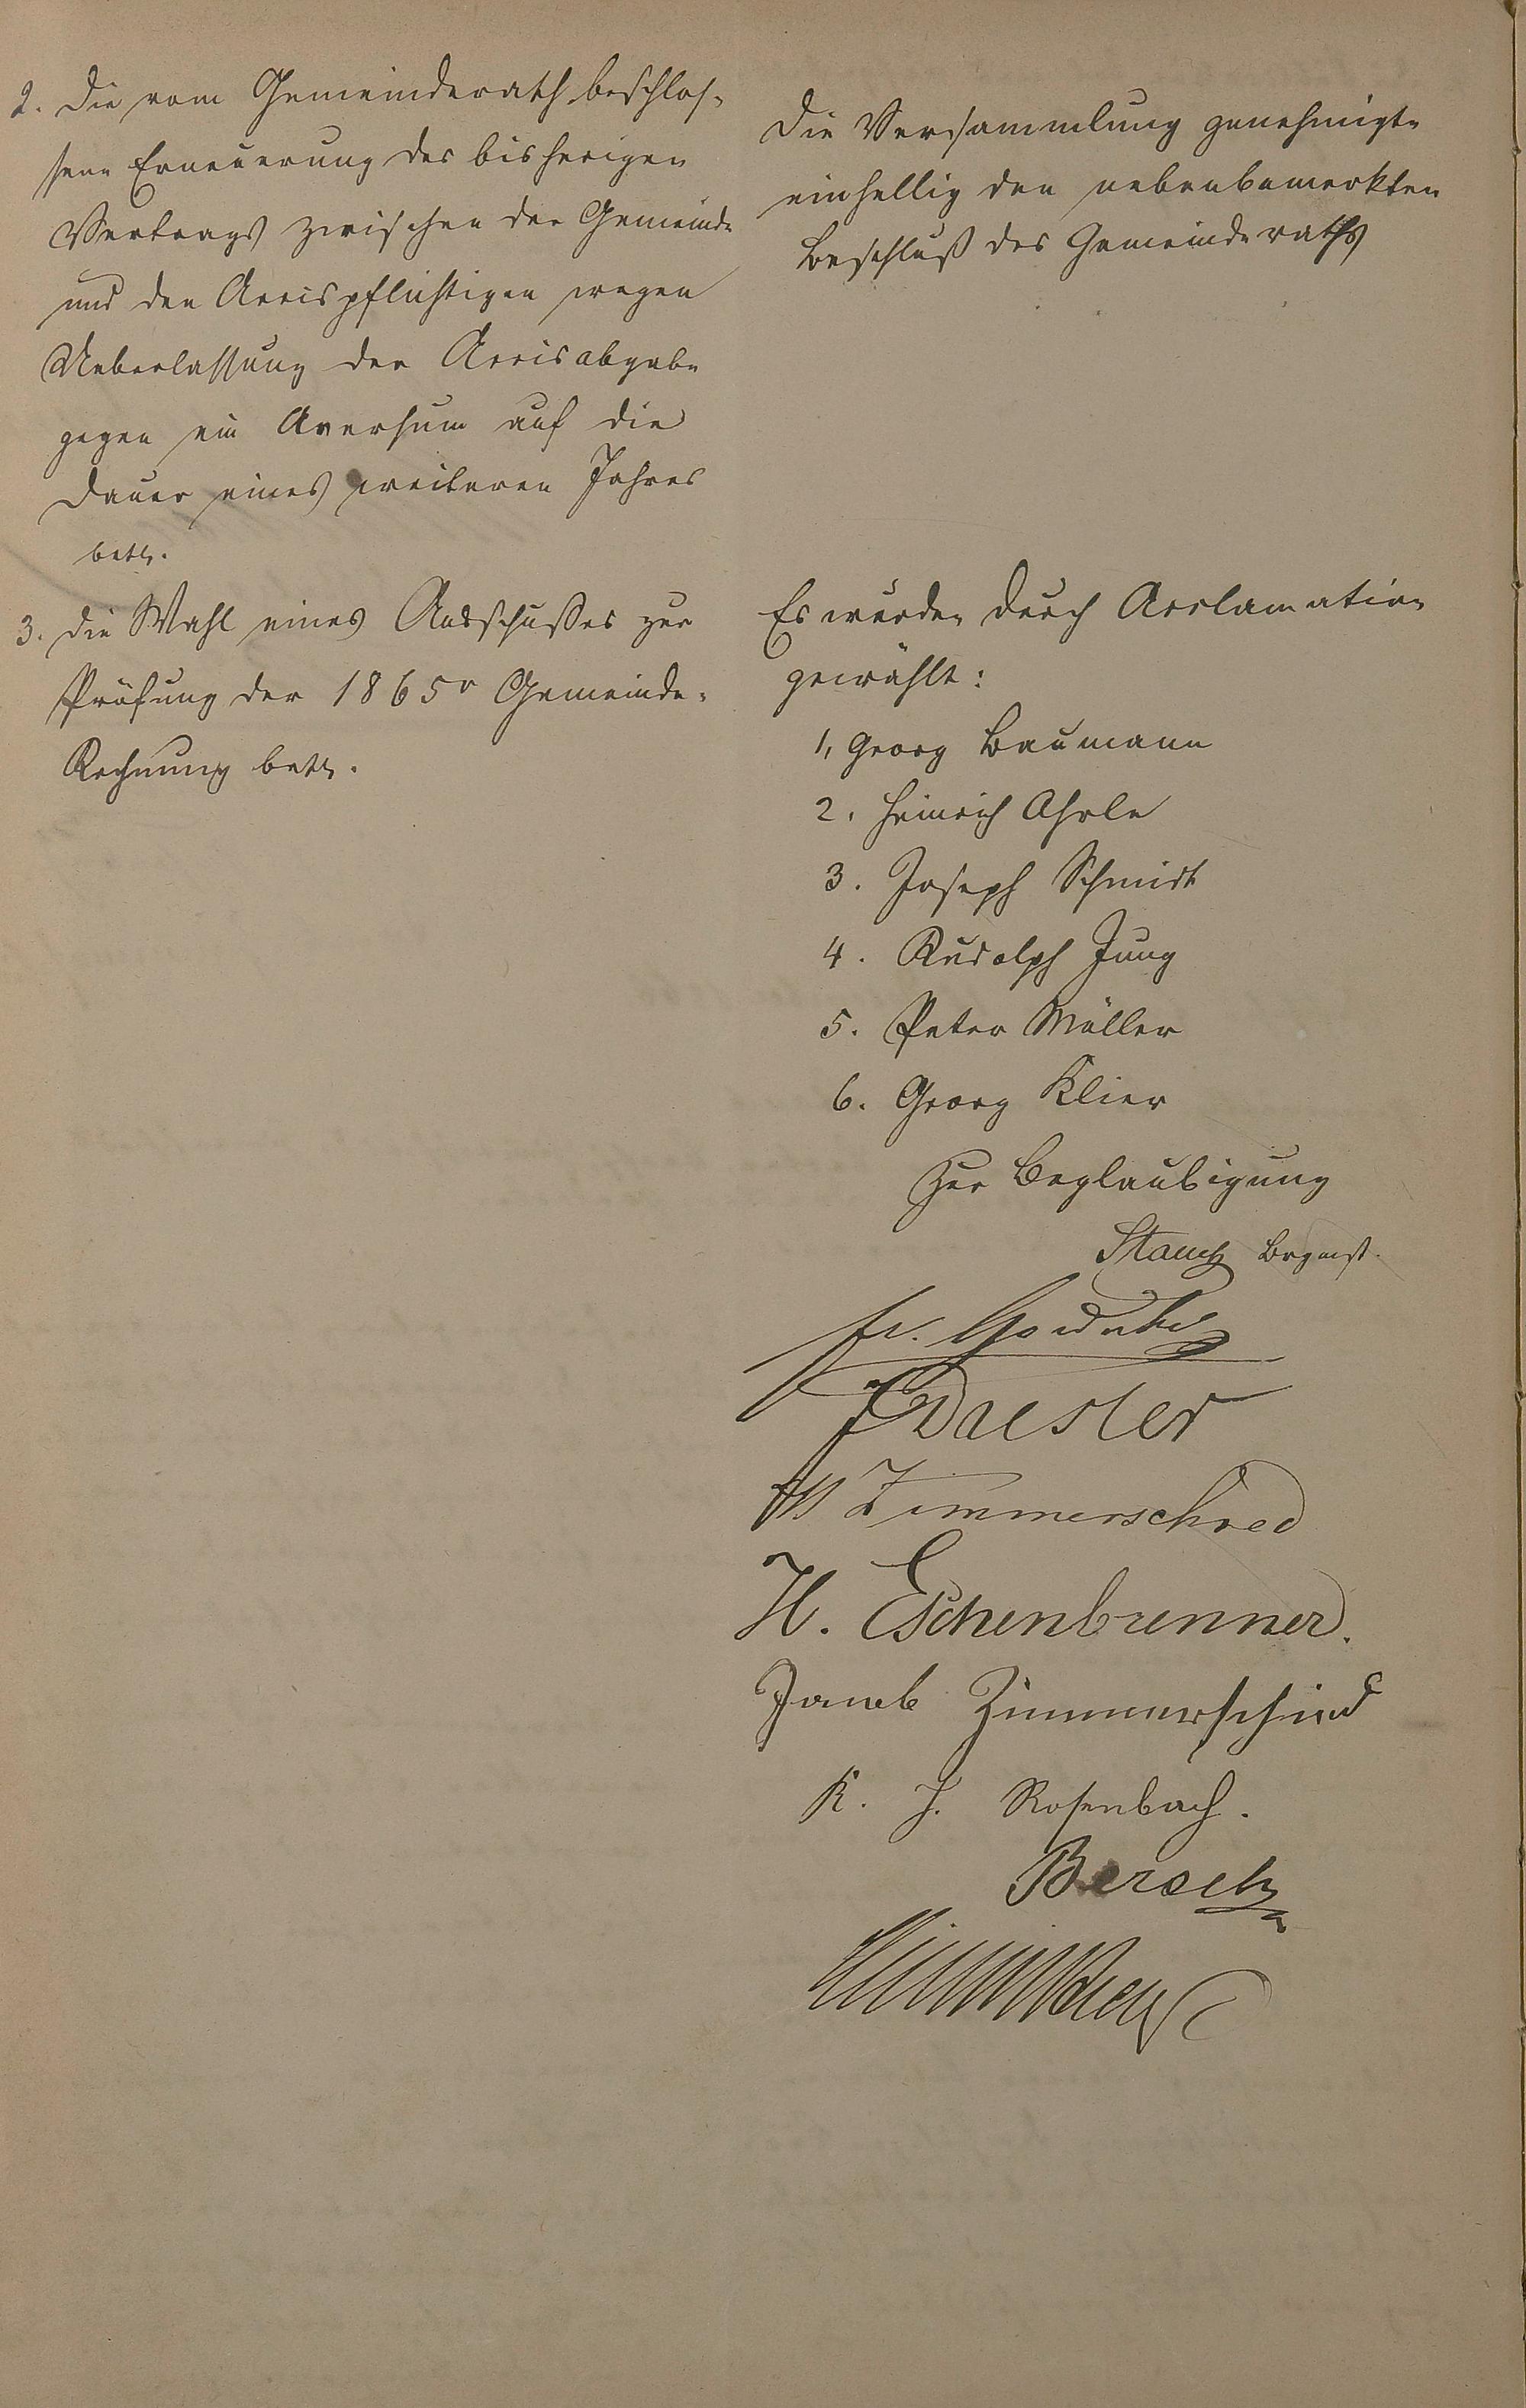 2. Die vom Gemeinderath beschlos-
sene Erneuerung des bisherigen
Vertrags zwischen der Gemeinde
und den Accispflichtigen wegen
Ueberlassung der Accisabgabe
gegen ein Aversum auf die
Dauer eines weiteren Jahres
betr.
Die Versammlung genehmigte
einhellig den nebenbemerkten
Beschluß des Gemeinderaths
3. Die Wahl eines Ausschusses zur
Prüfung der 1865r Gemeinde-
Rechnung betr.
Es wurden durch Acclamation
gewählt:
1, Georg Baumann
2. Heinrich Ohrle
3. Joseph Schmidt
4. Rudolph Jung
5. Peter Müller
6. Georg Klier
Zur Beglaubigung
Stauch Brgmst.
Fr.
Zimmerschied
H. Eschenbrenner.
Jacob Zimmerschied
K. J. Rosenbach.
Bersch